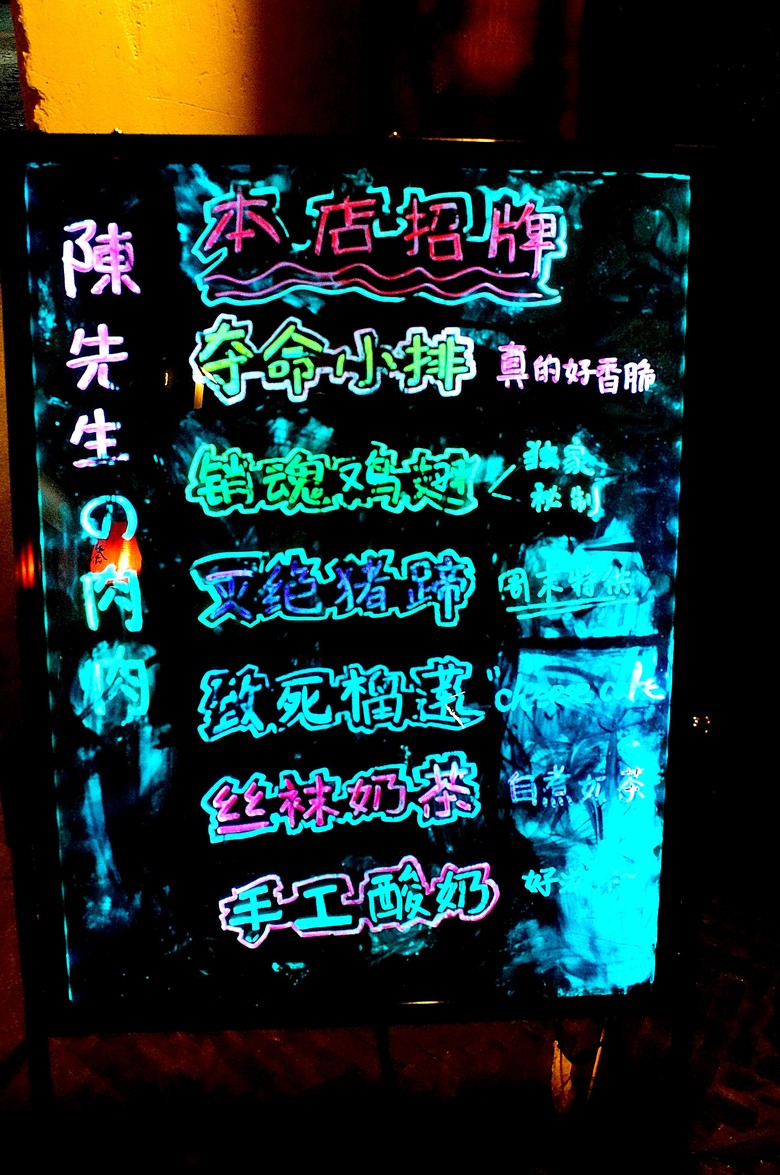 陳先生の肉肉
本店招牌
夺命小排 真的好香脆
销魂鸡翅 独家秘制
灭绝猪蹄 周末特供
致死榴莲
丝袜奶茶 自煮奶茶
手工酸奶 好